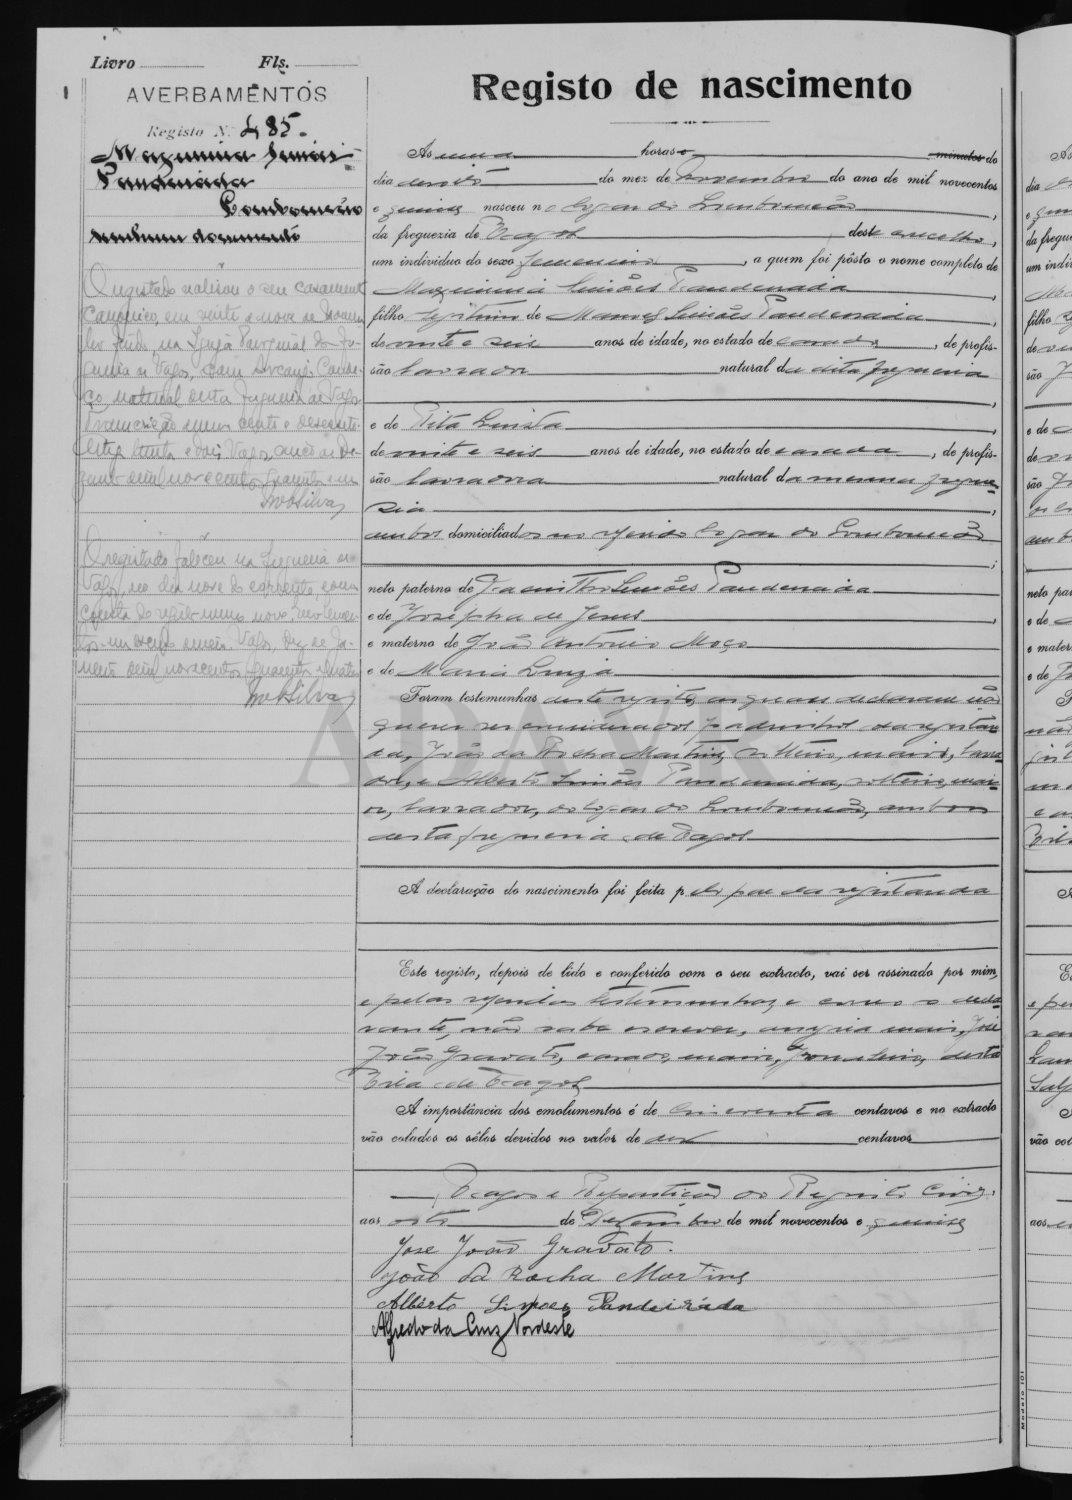 Livro Fls.
AVERBAMENTOS
Registo N.º 485.
Maximina Simões
Pandeirada
Lombomeão
nenhum documento
O registado realisou o seu casamento
canonico, em vinte e nove de
findo, na Igreja Paroquial da fre-
guesia de Vagos, com
natural desta freguesia de Vagos
Transcrição numero cento e
trinta e dois. Vagos, onze de De-
zembro de mil novecentos quarenta e um
MSilva
O registado faleceu na freguesia de
Vagos, no dia nove do corrente, como
consta do registo numero nove,
Vagos, dez de Ja-
neiro de mil novecentos quarenta e quatro
MSilva
Registo de nascimento
As uma horas e minutos do
dia dezoito do mez de Novembro do ano de mil novecentos
e quinze nasceu no logar do Lombomeão,
da freguezia de Vagos deste concelho,
um individuo do sexo femenino, a quem foi pôsto o nome completo de
Maximina Simões Pandeirada,
filho legitimo de Manuel Simões Pandeirada,
de vinte e seis anos de idade, no estado de casado, de profis-
são lavrador natural da dita freguesia,
e de Rita Luísa,
de vinte e seis anos de idade, no estado de casada, de profis-
são lavradora natural da mesma fregue-
sia,
ambos domiciliados no referido logar do Lombomeão;
neto paterno de Jacintho Simões Pandeirada
e de Josepha de Jesus,
e materno de João Antonio Moço
e de Maria Luiza
Foram testemunhas deste registo, as quaes declararam não
querer ser considerados padrinhos da registan-
da, João da Rocha Martins, solteiro, maior, lavra-
dor, e Alberto Simões Pandeirada, solteiro, mai-
or, lavrador, do logar do Lombomeão, ambos
desta freguesia de Vagos
A declaração do nascimento foi feita pelo pae da registanda
Este registo, depois de lido e conferido com o seu extracto, vai ser assinado por mim,
e pelas referidas testemunhas, e como o decla-
rante, não sabe escrever, assigna mais, José
João Gravato, casado, maior, jornaleiro, desta
Vila de Vagos
A importância dos emolumentos é de cincoenta centavos e no extracto
vão colados os sêlos devidos no valor de dez centavos
Vagos e Repartição do Registo Civil,
aos oito de Dezembro de mil novecentos e quinze
Jose João Gravato.
João da Rocha Martins
Alberto Simoes Pandeirada
Alfredo da Cruz Nordeste
Modelo 101